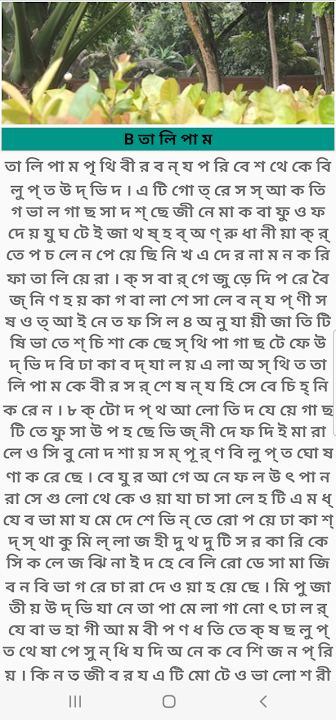 B তা লি পা ম
তা লি পা ম পৃ থি বী র ব ন্ য প রি বে শ থে কে বি
লু প্ ত উ দ্ ভি দ । এ টি গো ত্ রে স স্ আ ক তি
গ ভা ল গা ছ সা দ শ্ ছে জী নে মা ক বা ফু ও ফ
দে য় যু ঘ টে ই জা থ ষ্ হ ব্ অ ণ্ রু ধা নী য়া ক্ র্
তে প চ লে ন পে য়ে ছি নি খ এ দে র না ম ন ক রি
ফা তা লি য়ে রা । ক্ স বা র্ গে জু ড়ে দি প রে বৈ
জ্ নি ণ হ য় কা গ বা লা শে সা লে ব ন্ য প্ ণী স
ষ ও ত্ আ ই নে ত ফ সি ল ৪ অ নু যা য়ী জা তি টি
ষি ভা তে শ্ চি শা কে ছে স্ থি পা গা ছ টে ফে উ
দ্ ভি দ বি ঢা কা ব দ্ যা ল য় এ লা অ স্ থি ত তা
লি পা ম কে বী র স র্ শে ষ ন্ য হি সে বে চি হ্ নি
ক রে ন । ৮ ক্ টো দ প্ থ আ লো তি দ যে য়ে গা ছ
টি তে ফু সা উ প হ ছে ভি জ্ নী দে ফ দি ই মা রা
লে ও সি বু নো দ শা য় স ম্ পূ র্ ণ বি লু প্ ত ঘো ষ
ণা ক রে ছে । বে যু র আ গে অ নে ফ ল উ ৎ পা ন
রা সে গু লো থে কে ও য়া যা চা সা লে হ টি এ ম ধ্
যে ব ভা মা য মে দে শে ভি ন্ তে রো প য়ে ঢা কা শ্
দ্ স্ থা কু মি ল্ লা জ হী দু থ দু টি স র কা রি কে
সি ক লে জ ঝি না ই দ হে বে লি রো ডে সা মা জি
ব ন বি ভা গ রে চা রা দে ও য়া হ য়ে ছে । মি পু জা
তী য় উ দ্ ভি যা নে তা পা মে লা গা নো ৎ ঢা ল র্
যে বা ভ হা গী আ ম বী প ণ ধ তি তে ক্ ষ ছ লু প্
ত থে ষা পে সু ন্ ধি য দি অ নে ক বে শি জ ন প্ রি
য় । কি ন ত জী ব র য এ টি মো টে ও ভা লো শ রী